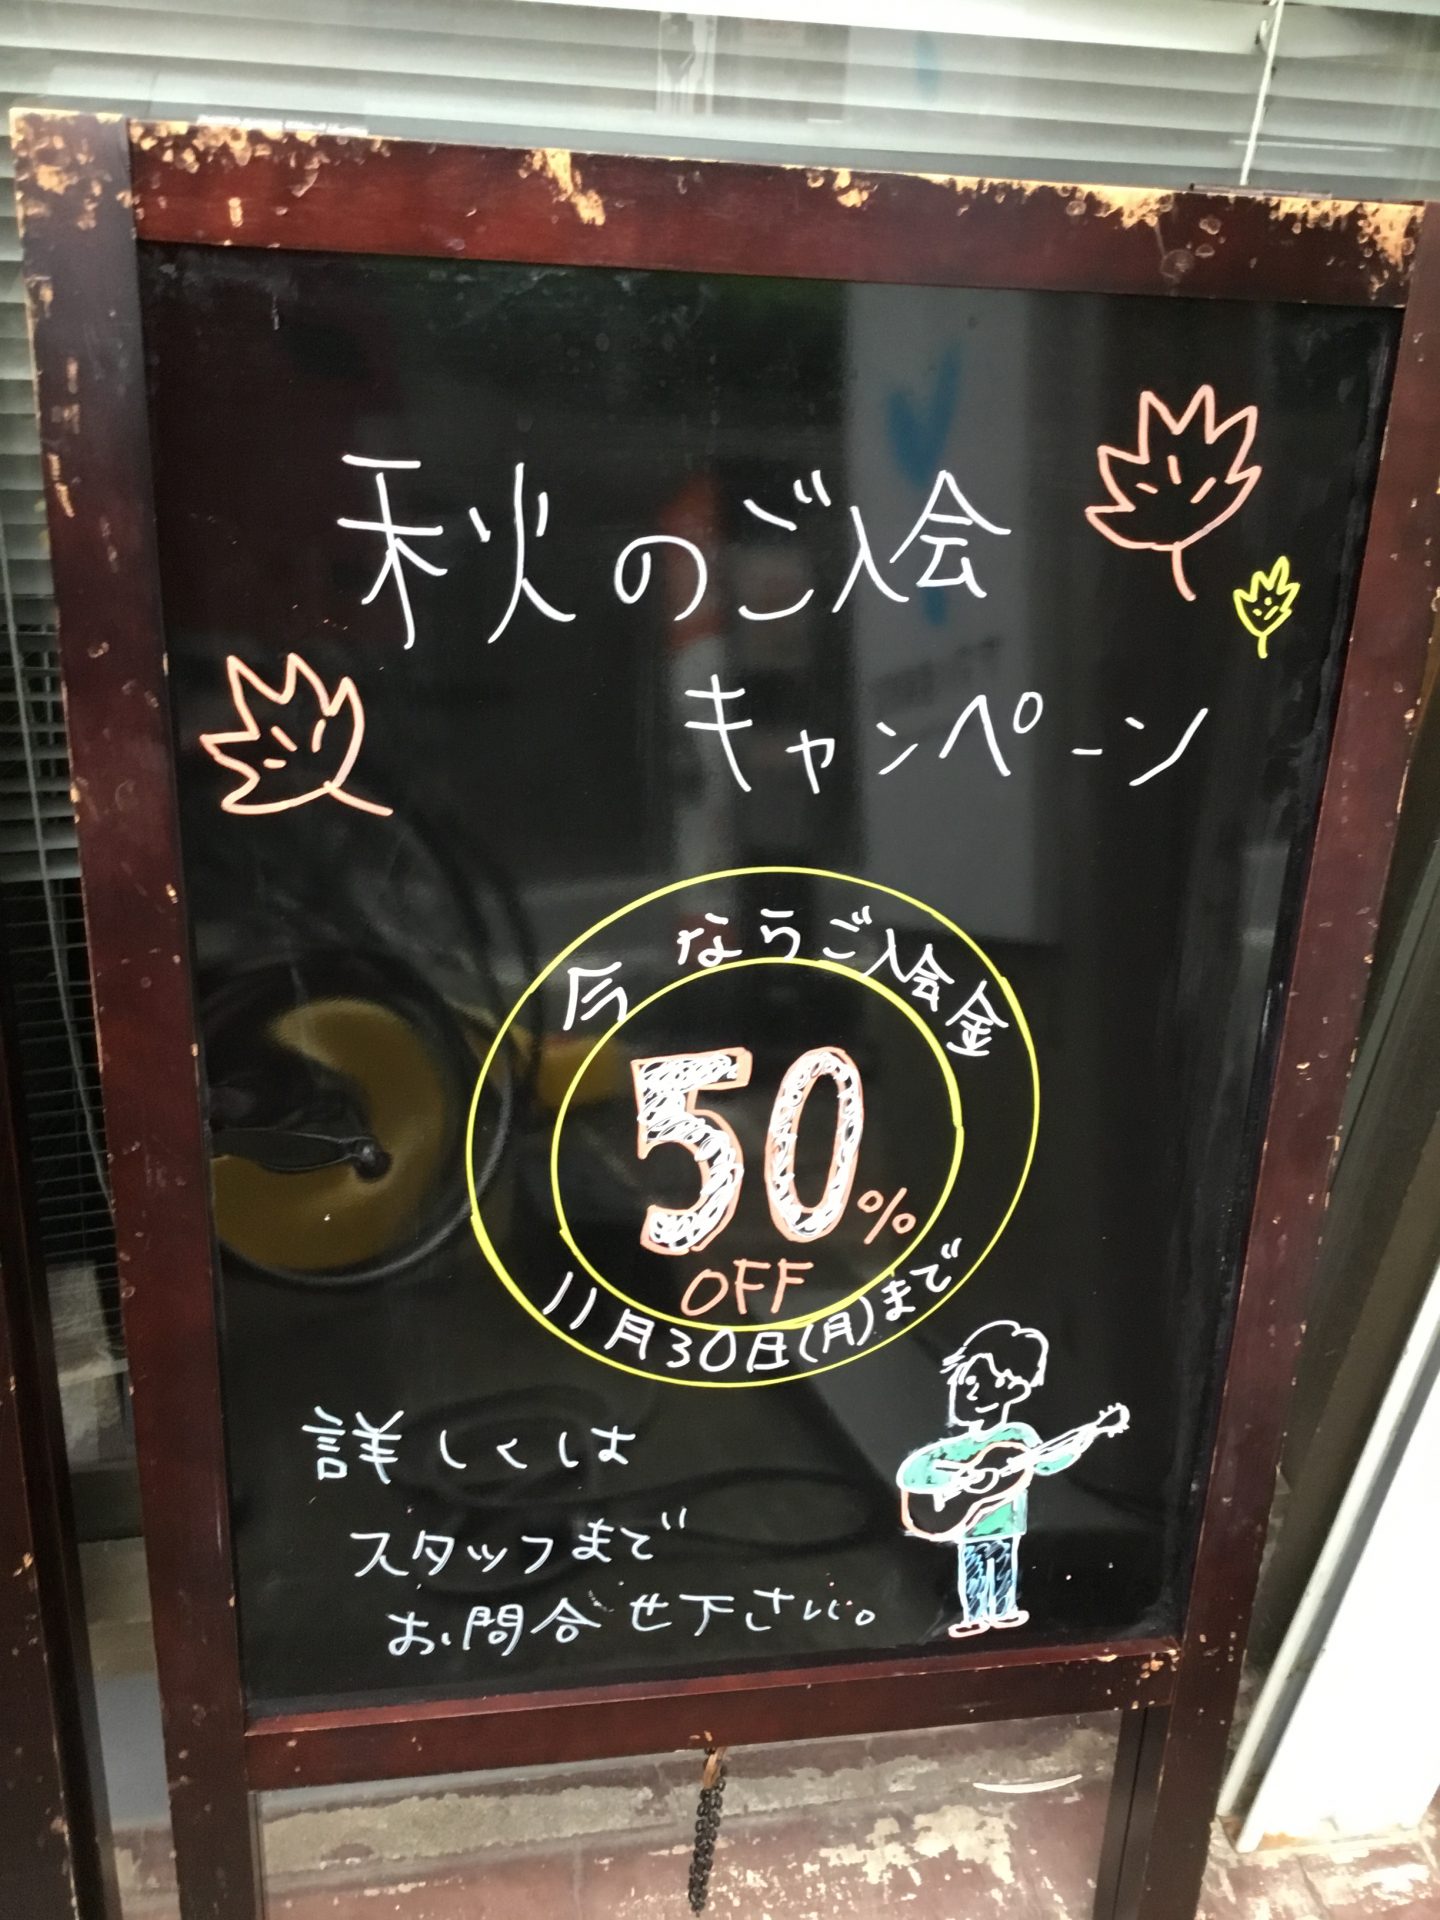 秋のご入会
キャンペーン
今ならご入会金
50%
OFF
11月30日(月)まで
詳しくは
スタッフまで
お問合せ下さい。